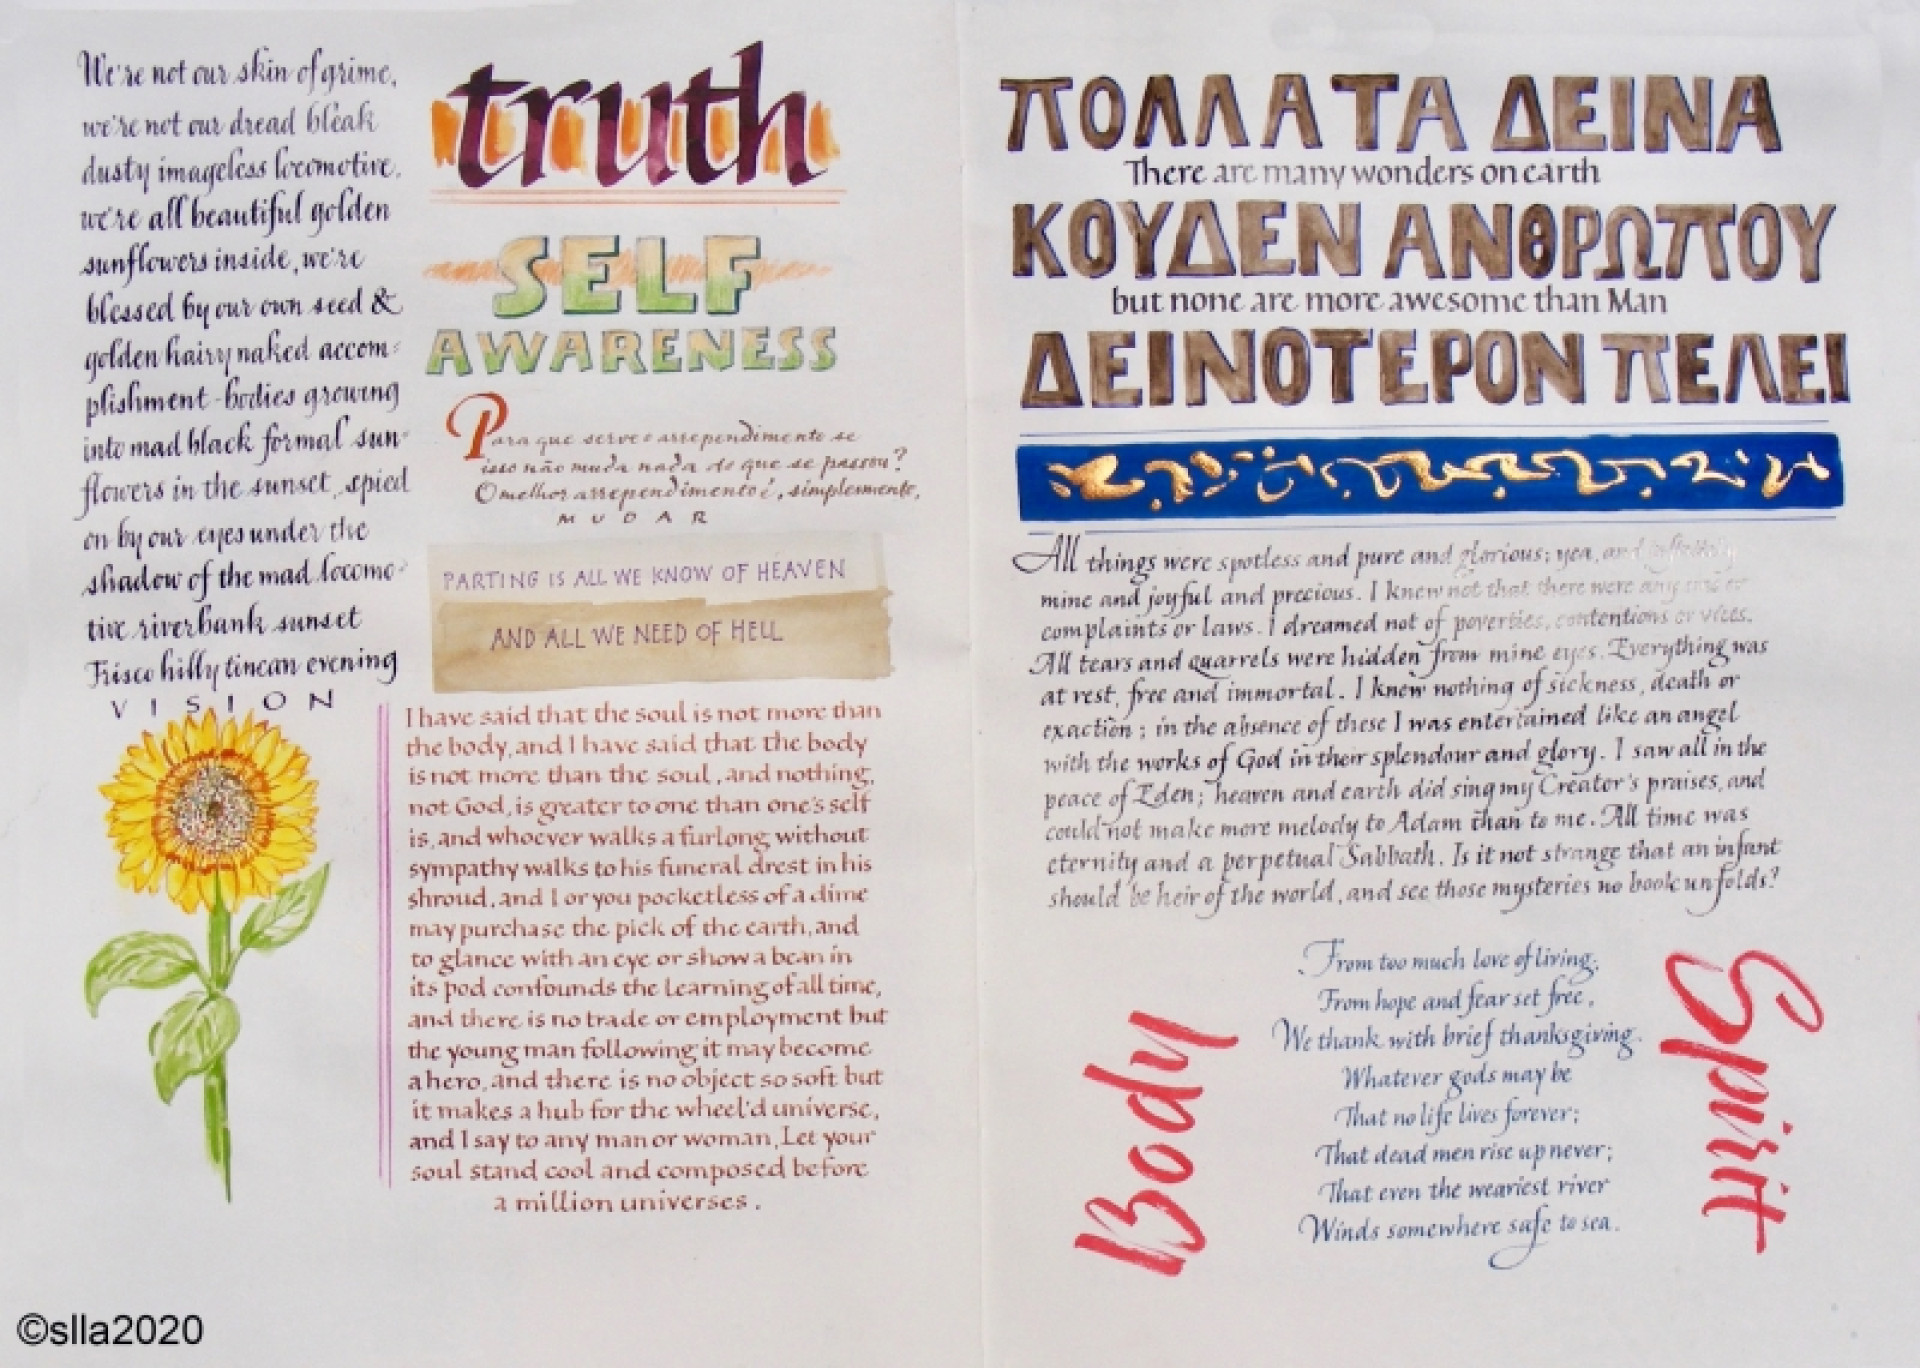 We're not our skin of grime,
we're not our dread bleak
dusty imageless locomotive,
we're all beautiful golden
sunflowers inside, we're
blessed by our own seed &
golden hairy naked accom-
plishment-bodies growing
into mad black formal sun-
flowers in the sunset, spied
on by our eyes under the
shadow of the mad locomo-
tive riverbank sunset
Frisco hilly tincan evening
VISION
truth
SELF
AWARENESS
Para que serve o arrependimento se
isso não muda nada do que se passou?
O melhor arrependimento é, simplesmente,
MUDAR
PARTING IS ALL WE KNOW OF HEAVEN
AND ALL WE NEED OF HELL
I have said that the soul is not more than
the body, and I have said that the body
is not more than the soul, and nothing,
not God, is greater to one than one's self
is, and whoever walks a furlong without
sympathy walks to his funeral drest in his
shroud, and I or you pocketless of a dime
may purchase the pick of the earth, and
to glance with an eye or show a bean in
its pod confounds the learning of all time,
and there is no trade or employment but
the young man following it may become
a hero, and there is no object so soft but
it makes a hub for the wheel'd universe,
and I say to any man or woman, Let your
soul stand cool and composed before
a million universes.
ΠΟΛΛΑ ΤΑ ΔΕΙΝΑ
There are many wonders on earth
ΚΟΥΔΕΝ ΑΝΘΡΩΠΟΥ
but none are more awesome than Man
ΔΕΙΝΟΤΕΡΟΝ ΠΕΛΕΙ
All things were spotless and pure and glorious; yea, and infinitely
mine and joyful and precious. I knew not that there were any
complaints or laws. I dreamed not of poverties, contentions or vices.
All tears and quarrels were hidden from mine eyes. Everything was
at rest, free and immortal. I knew nothing of sickness, death or
exaction; in the absence of these I was entertained like an angel
with the works of God in their splendour and glory. I saw all in the
peace of Eden; heaven and earth did sing my Creator's praises, and
could not make more melody to Adam than to me. All time was
eternity and a perpetual Sabbath. Is it not strange that an infant
should be heir of the world, and see those mysteries no book unfolds?
Body
From too much love of living,
From hope and fear set free,
We thank with brief thanksgiving
Whatever gods may be
That no life lives forever;
That dead men rise up never;
That even the weariest river
Winds somewhere safe to sea.
Spirit
©slla2020